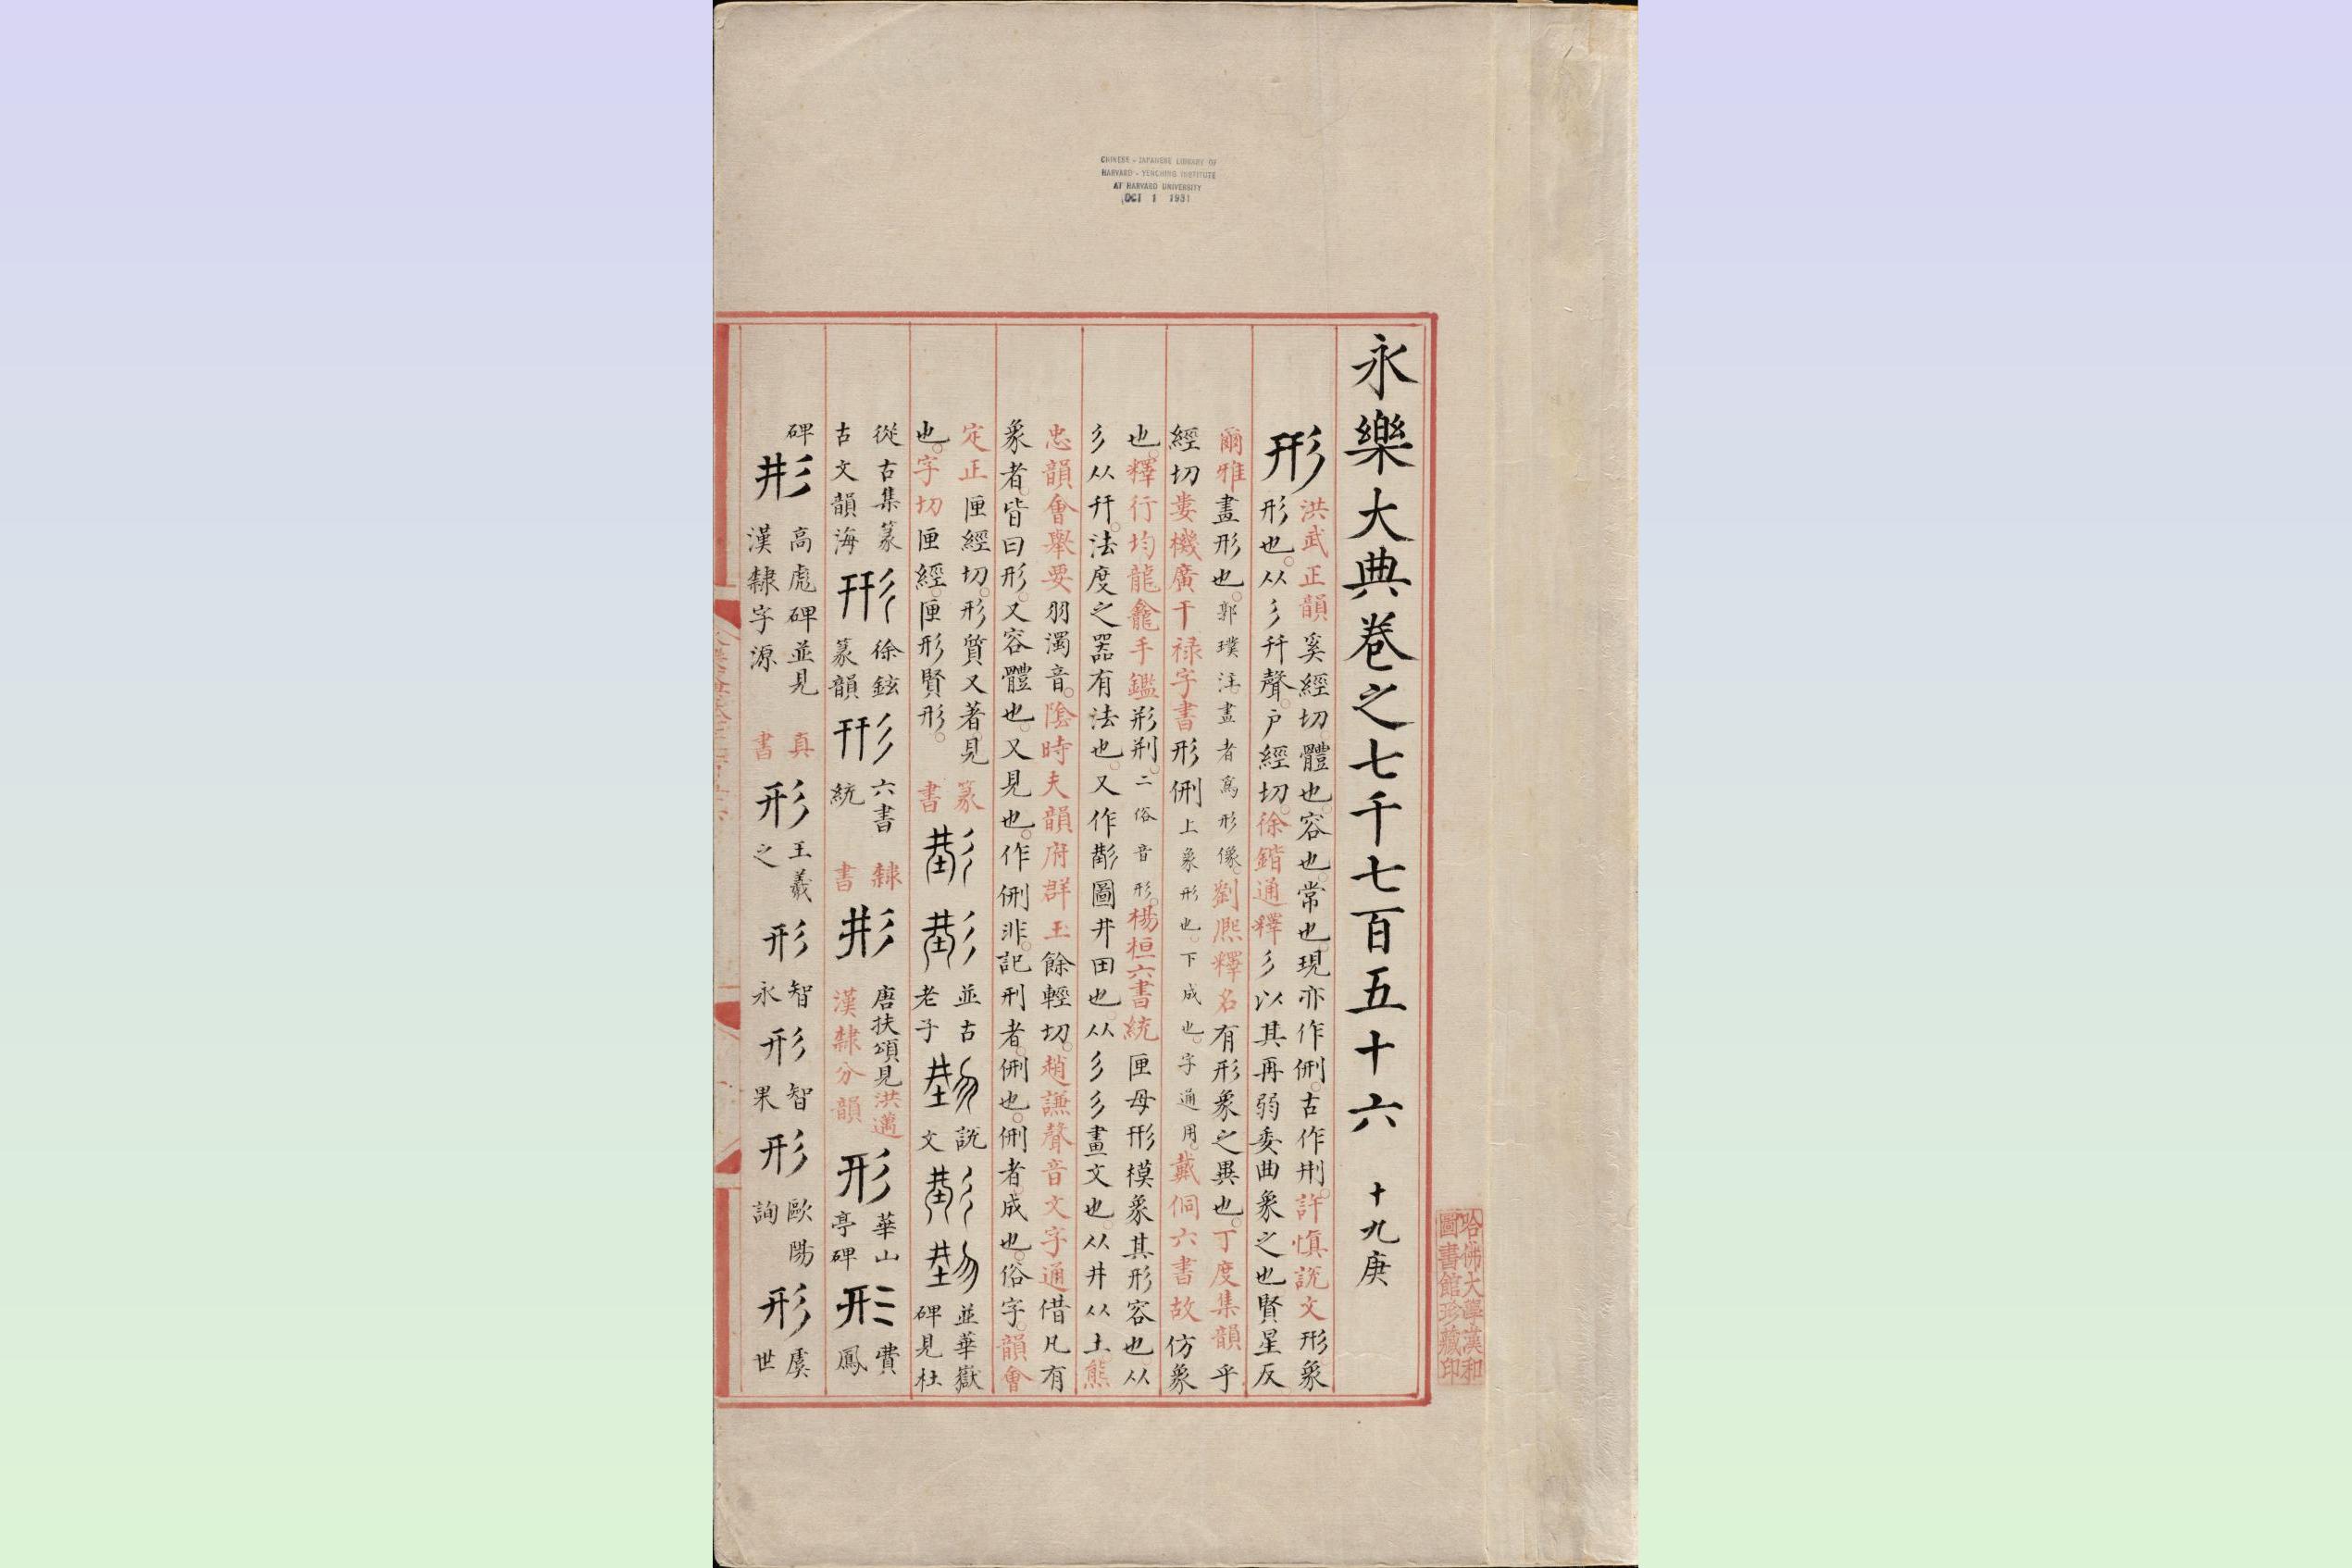 CHINESE - JAPANESE LIBRARY OF
HARVARD - YENCHING INSTITUTE
AT HARVARD UNIVERSITY
OCT 1 1931
哈佛大學漢和
圖書館珍藏印
永樂大典卷之七千七百五十六 十九庚
形
洪武正韻奚經切體也容也常也現亦作侀古作㓝許慎說文形象
形也。从彡幵聲。戶經切。徐鍇通釋彡以其再弱委曲象之也賢星反
爾雅畫形也。郭璞注。畫者為形像。劉熙釋名有形象之異也。丁度集韻乎
經切婁機廣干祿字書形侀上象形也。下成也。字通用。戴侗六書故仿象
也。釋行均龍龕手鑑形㓝。二俗音形。楊桓六書統匣母形模象其形容也从
彡从幵。法度之器有法也。又作㓝圖井田也。从彡彡畫文也。从井从土。熊
忠韻會舉要羽濁音。陰時夫韻府群玉餘輕切。趙謙聲音文字通借凡有
象者。皆曰形。又容體也。又見也。作侀非。記刑者。侀也。侀者。成也。俗字。韻會
定正匣經切。形質又著見 篆
也。字切匣經。匣形賢形。 書
並古
老子
說
文
並華嶽
碑見杜
從古集篆
古文韻海
徐鉉
篆韻
六書
統
隸
書
唐扶頌見洪邁
漢隸分韻
形
華山
亭碑
形
費
鳳
碑
高彪碑並見
漢隸字源
真
書
形
王羲
之
形
智
永
形
智
果
形
歐陽
詢
形
虞
世